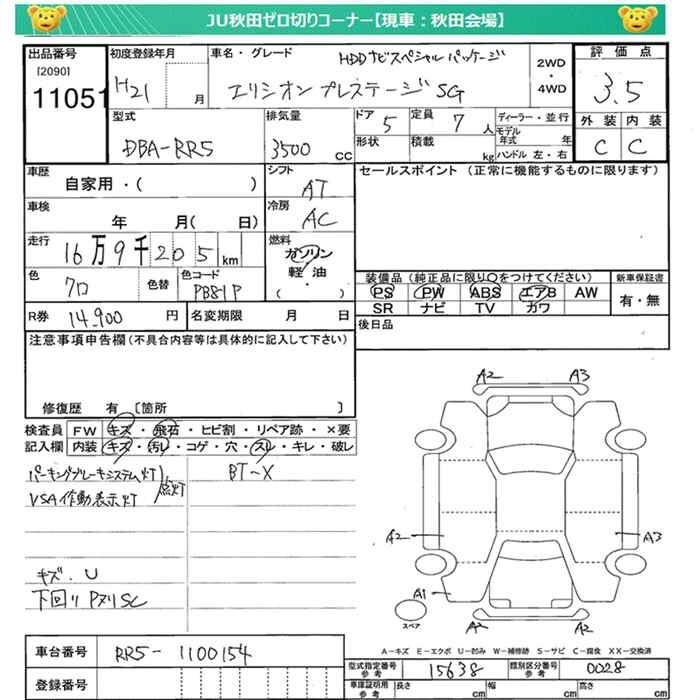 JU秋田ゼロ切りコーナー【現車：秋田会場】
出品番号
[2090]
11051
初度登録年月
H21 月
車名・グレード
HDDナビスペシャルパッケージ
エリシオン プレステージ SG
2WD
・
4WD
評価点
3.5
外装 内装
C C
型式
DBA-RR5
排気量
3500 cc
ドア 5
定員 7 人
形状
積載 kg
ディーラー・並行
モデル年式 年
ハンドル 左・右
車歴
自家用・( )
シフト
AT
セールスポイント (正常に機能するものに限ります)
車検
年 月( 日)
冷房
AC
走行
16万9千205km
燃料
ガソリン
軽油
・
( )
色
クロ
色替
色コード
PB81P
装備品 (純正品に限り○をつけてください)
PS PW ABS エアB AW
SR ナビ TV カワ
新車保証書
有・無
R券 14,900 円
名変期限 月 日
後日品
注意事項申告欄(不具合内容等は具体的に記入して下さい)
修復歴 有 [箇所 ]
検査員記入欄
FW キズ・飛石・ヒビ割・リペア跡・×要
内装 キズ・汚レ・コゲ・穴・スレ・キレ・破レ
パーキングブレーキシステム灯
VSA作動表示灯
点灯
BT〜X
キズ.U
下回りPヌリSC
A2 A3
A2 A3
A1
スペア
A2 A2
A-キズ E-エクボ U-凹み W-補修跡 S-サビ C-腐食 XX-交換済
車台番号
RR5-1100154
登録番号
型式指定番号 参考
15638
類別区分番号 参考
0028
車庫証明用 参考
長さ cm
幅 cm
高さ cm